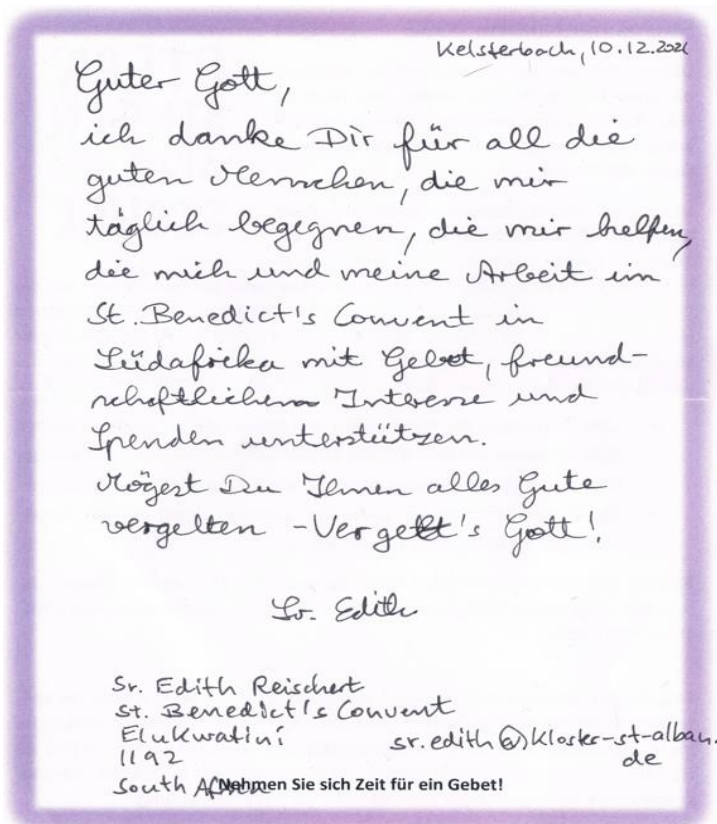 Kelsterbach, 10.12.2021
Guter Gott,
ich danke Dir für all die
guten Menschen, die mir
täglich begegnen, die mir helfen,
die mich und meine Arbeit im
St. Benedict's Convent in
Südafrika mit Gebet, freund-
schaftlichem Interesse und
Spenden unterstützen.
Mögest Du Ihnen alles Gute
vergelten - Vergelt's Gott!
Sr. Edith
Sr. Edith Reischert
St. Benedict's Convent
Elukwatini
sr.edith@kloster-st-alban.
1192
de
South Africa
Nehmen Sie sich Zeit für ein Gebet!